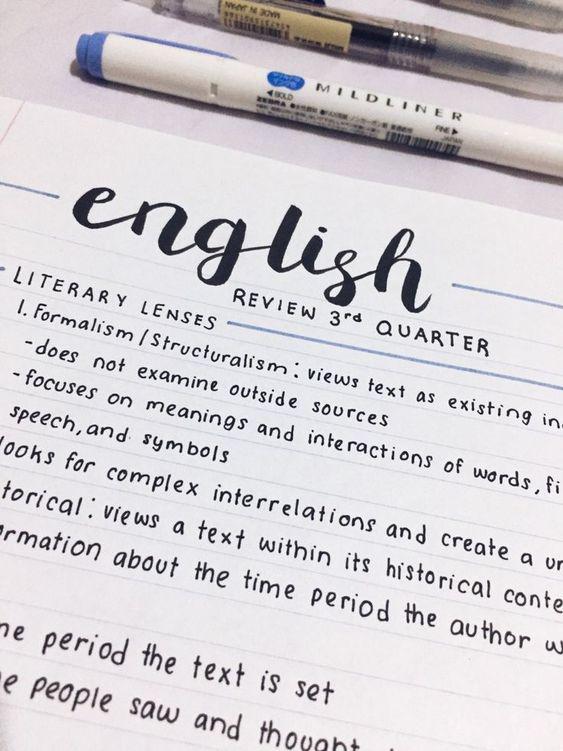 MADE IN JAPAN
MILDLINER
◀BOLD
ZEBRA
FINE▶
JAPAN
english
REVIEW 3rd QUARTER
LITERARY LENSES
1. Formalism/Structuralism: views text as existing in
-does not examine outside sources
-focuses on meanings and interactions of words, fi
speech, and symbols
looks for complex interrelations and create a un
torical: views a text within its historical conte
ormation about the time period the author w
ne period the text is set
e people saw and thought